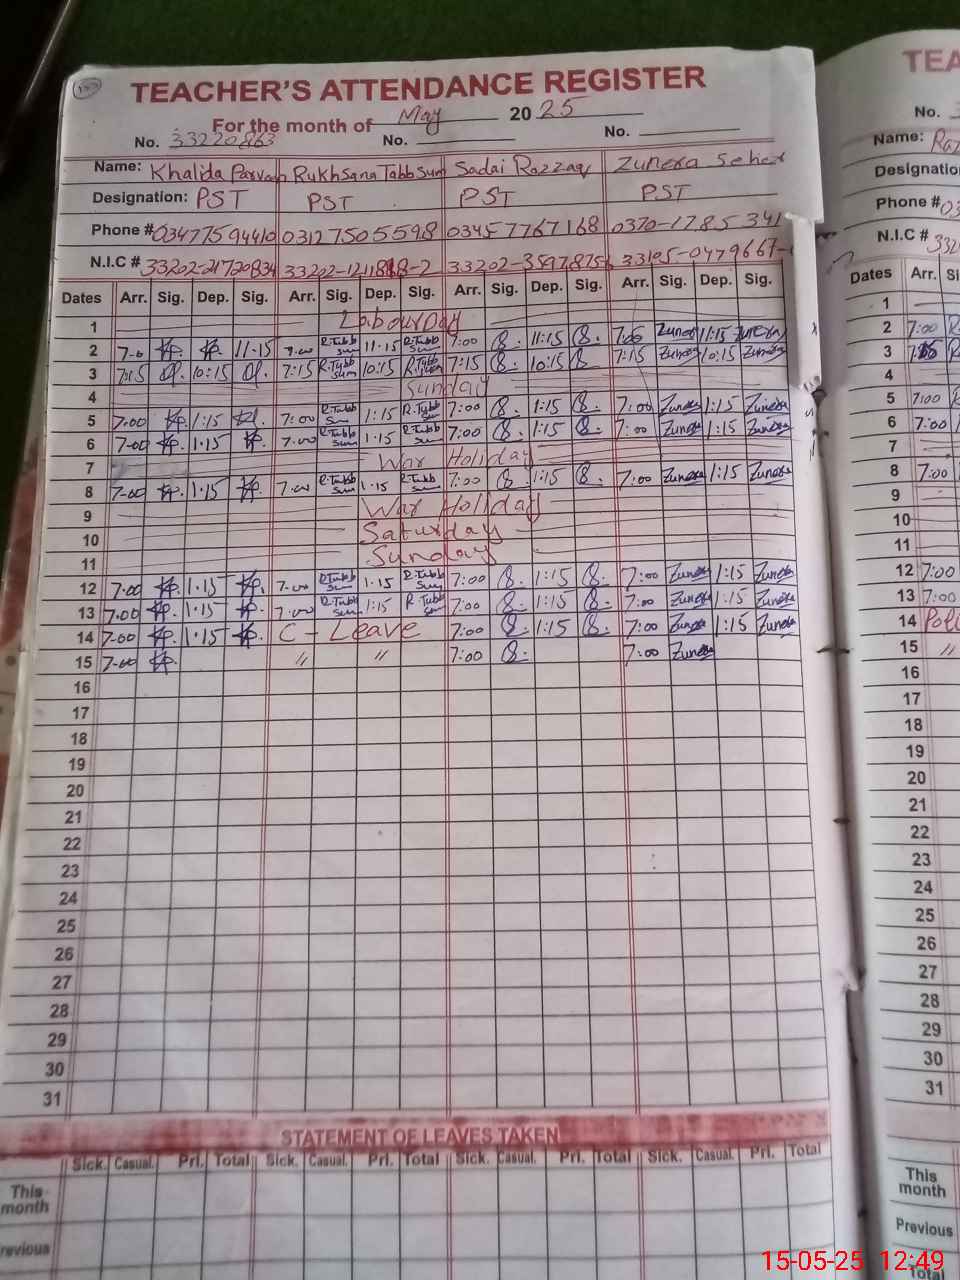 TEACHER'S ATTENDANCE REGISTER
For the month of May 2025
No. 33220863 No. No.
Name: Khalida Parvan Rukhsana Tabbsum Sadai Razzaq Zunera Seher
Designation: PST PST PST PST
Phone # 03477594410 03127505598 03457767168 0370-1785341
N.I.C # 33202-21720834 33202-1211818-2 33202-3597875 33105-0479667-
Dates Arr. Sig. Dep. Sig. Arr. Sig. Dep. Sig. Arr. Sig. Dep. Sig. Arr. Sig. Dep. Sig.
1 Labour Day
2 7-0 11-15 7.00 R.Tabb sum 11-15 R.Tabb sum 7:00 11:15 7:00 Zunera 11:15 Zunera
3 7:15 10:15 7:15 R.Tabb sum 10:15 R.Tabb sum 7:15 10:15 7:15 Zunera 10:15 Zunera
4 Sunday
5 7.00 1:15 7:00 R.Tabb sum 1:15 R.Tabb sum 7:00 1:15 7:00 Zunera 1:15 Zunera
6 7-00 1.15 7.00 R.Tabb sum 1.15 R.Tabb sum 7:00 1:15 7:00 Zunera 1:15 Zunera
7 War Holiday
8 7-00 1.15 7.00 R.Tabb sum 1.15 R.Tabb sum 7:00 1:15 7:00 Zunera 1:15 Zunera
9 War Holiday
10 Saturday
11 Sunday
12 7.00 1.15 7.00 R.Tabb sum 1.15 R.Tabb sum 7:00 1:15 7:00 Zunera 1:15 Zunera
13 7.00 1.15 7.00 R.Tabb sum 1:15 R.Tabb sum 7:00 1:15 7:00 Zunera 1:15 Zunera
14 7-00 1.15 C - Leave 7:00 1:15 7:00 Zunera 1:15 Zunera
15 7-00 〃 〃 7:00 7:00 Zunera
16
17
18
19
20
21
22
23
24
25
26
27
28
29
30
31
STATEMENT OF LEAVES TAKEN
Sick. Casual. Pri. Total Sick. Casual. Pri. Total Sick. Casual. Pri. Total Sick. Casual. Pri. Total
This month
revious
TEA
No.
Name:
Designation
Phone #
N.I.C #
Dates Arr.
1
2 7:00
3
4
5 7:00
6 7:00
7
8 7:00
9
10
11
12 7:00
13 7:00
14
15 〃
16
17
18
19
20
21
22
23
24
25
26
27
28
29
30
31
This month
Previous
Total
15-05-25 12:49